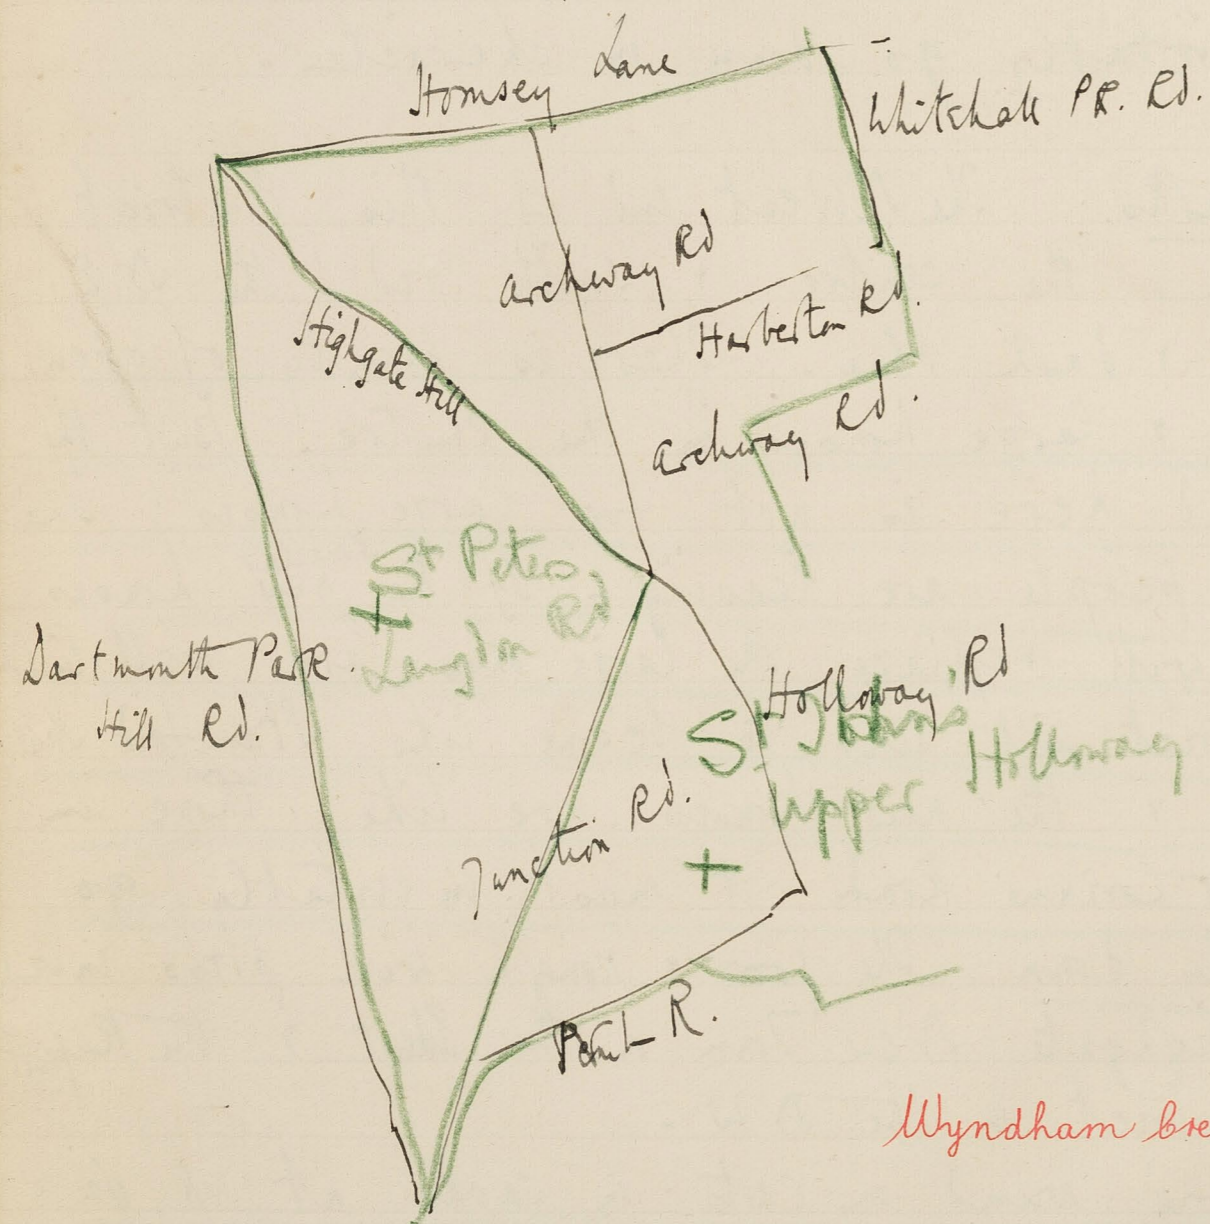 Hornsey Lane
Whitehall PK. Rd.
Archway Rd
Harberton Rd.
Highgate Hill
Archway Rd.
St Peters,
Langdon Rd
Dartmouth Park
Hill Rd.
Holloway Rd
St John's
Upper Holloway
Junction Rd.
R.
Wyndham Cre